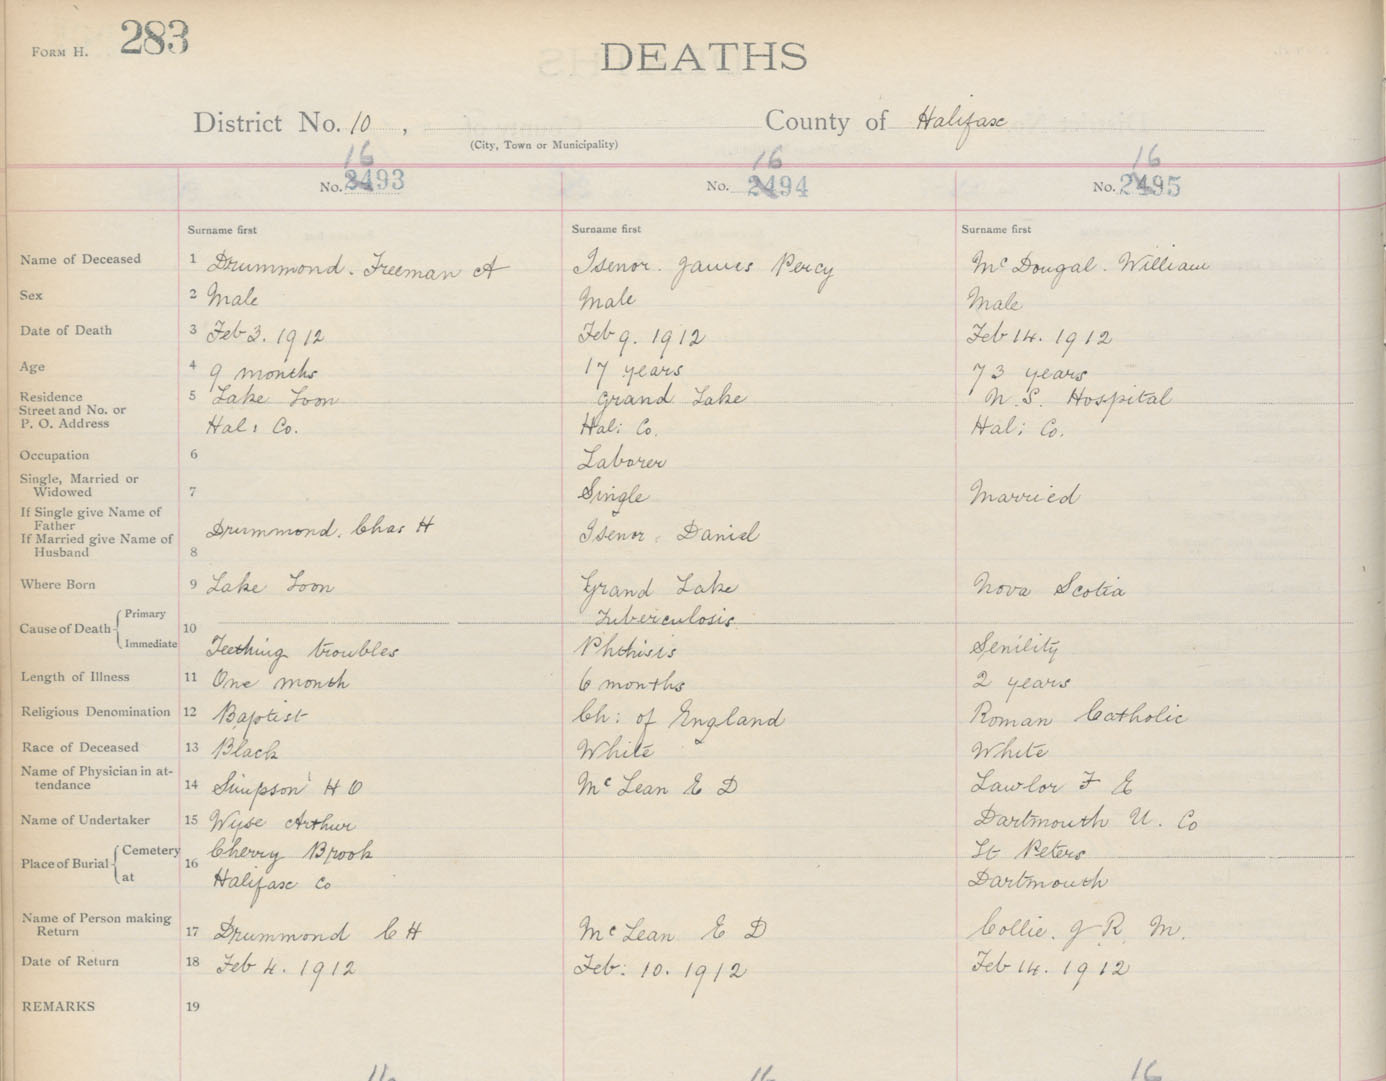 FORM H. 283
DEATHS
District No. 10 , County of Halifax
(City, Town or Municipality)
16 16 16
No. 2493 No. 2494 No. 2495
Surname first Surname first Surname first
Name of Deceased 1 Drummond. Freeman A Isenor. James Percy McDougal. William
Sex 2 Male Male Male
Date of Death 3 Feb 3. 1912 Feb 9. 1912 Feb 14. 1912
Age 4 9 months 17 years 73 years
Residence 5 Lake Loon Grand Lake N. S. Hospital
Street and No. or
P. O. Address Hal: Co. Hal: Co. Hal: Co.
Occupation 6 Laborer
Single, Married or
Widowed 7 Single Married
If Single give Name of
Father Drummond. Chas H Isenor. Daniel
If Married give Name of
Husband 8
Where Born 9 Lake Loon Grand Lake Nova Scotia
Cause of Death 10 Primary Tuberculosis
Immediate Teething troubles Phthisis Senility
Length of Illness 11 One month 6 months 2 years
Religious Denomination 12 Baptist Ch: of England Roman Catholic
Race of Deceased 13 Black White White
Name of Physician in at-
tendance 14 Simpson H O McLean E D Lawlor F E
Name of Undertaker 15 Wyse Arthur Dartmouth U. Co
Place of Burial 16 Cemetery Cherry Brook St Peters
at Halifax Co Dartmouth
Name of Person making
Return 17 Drummond C H McLean E D Collie. J R. M.
Date of Return 18 Feb 4. 1912 Feb: 10. 1912 Feb 14. 1912
REMARKS 19
16 16 16